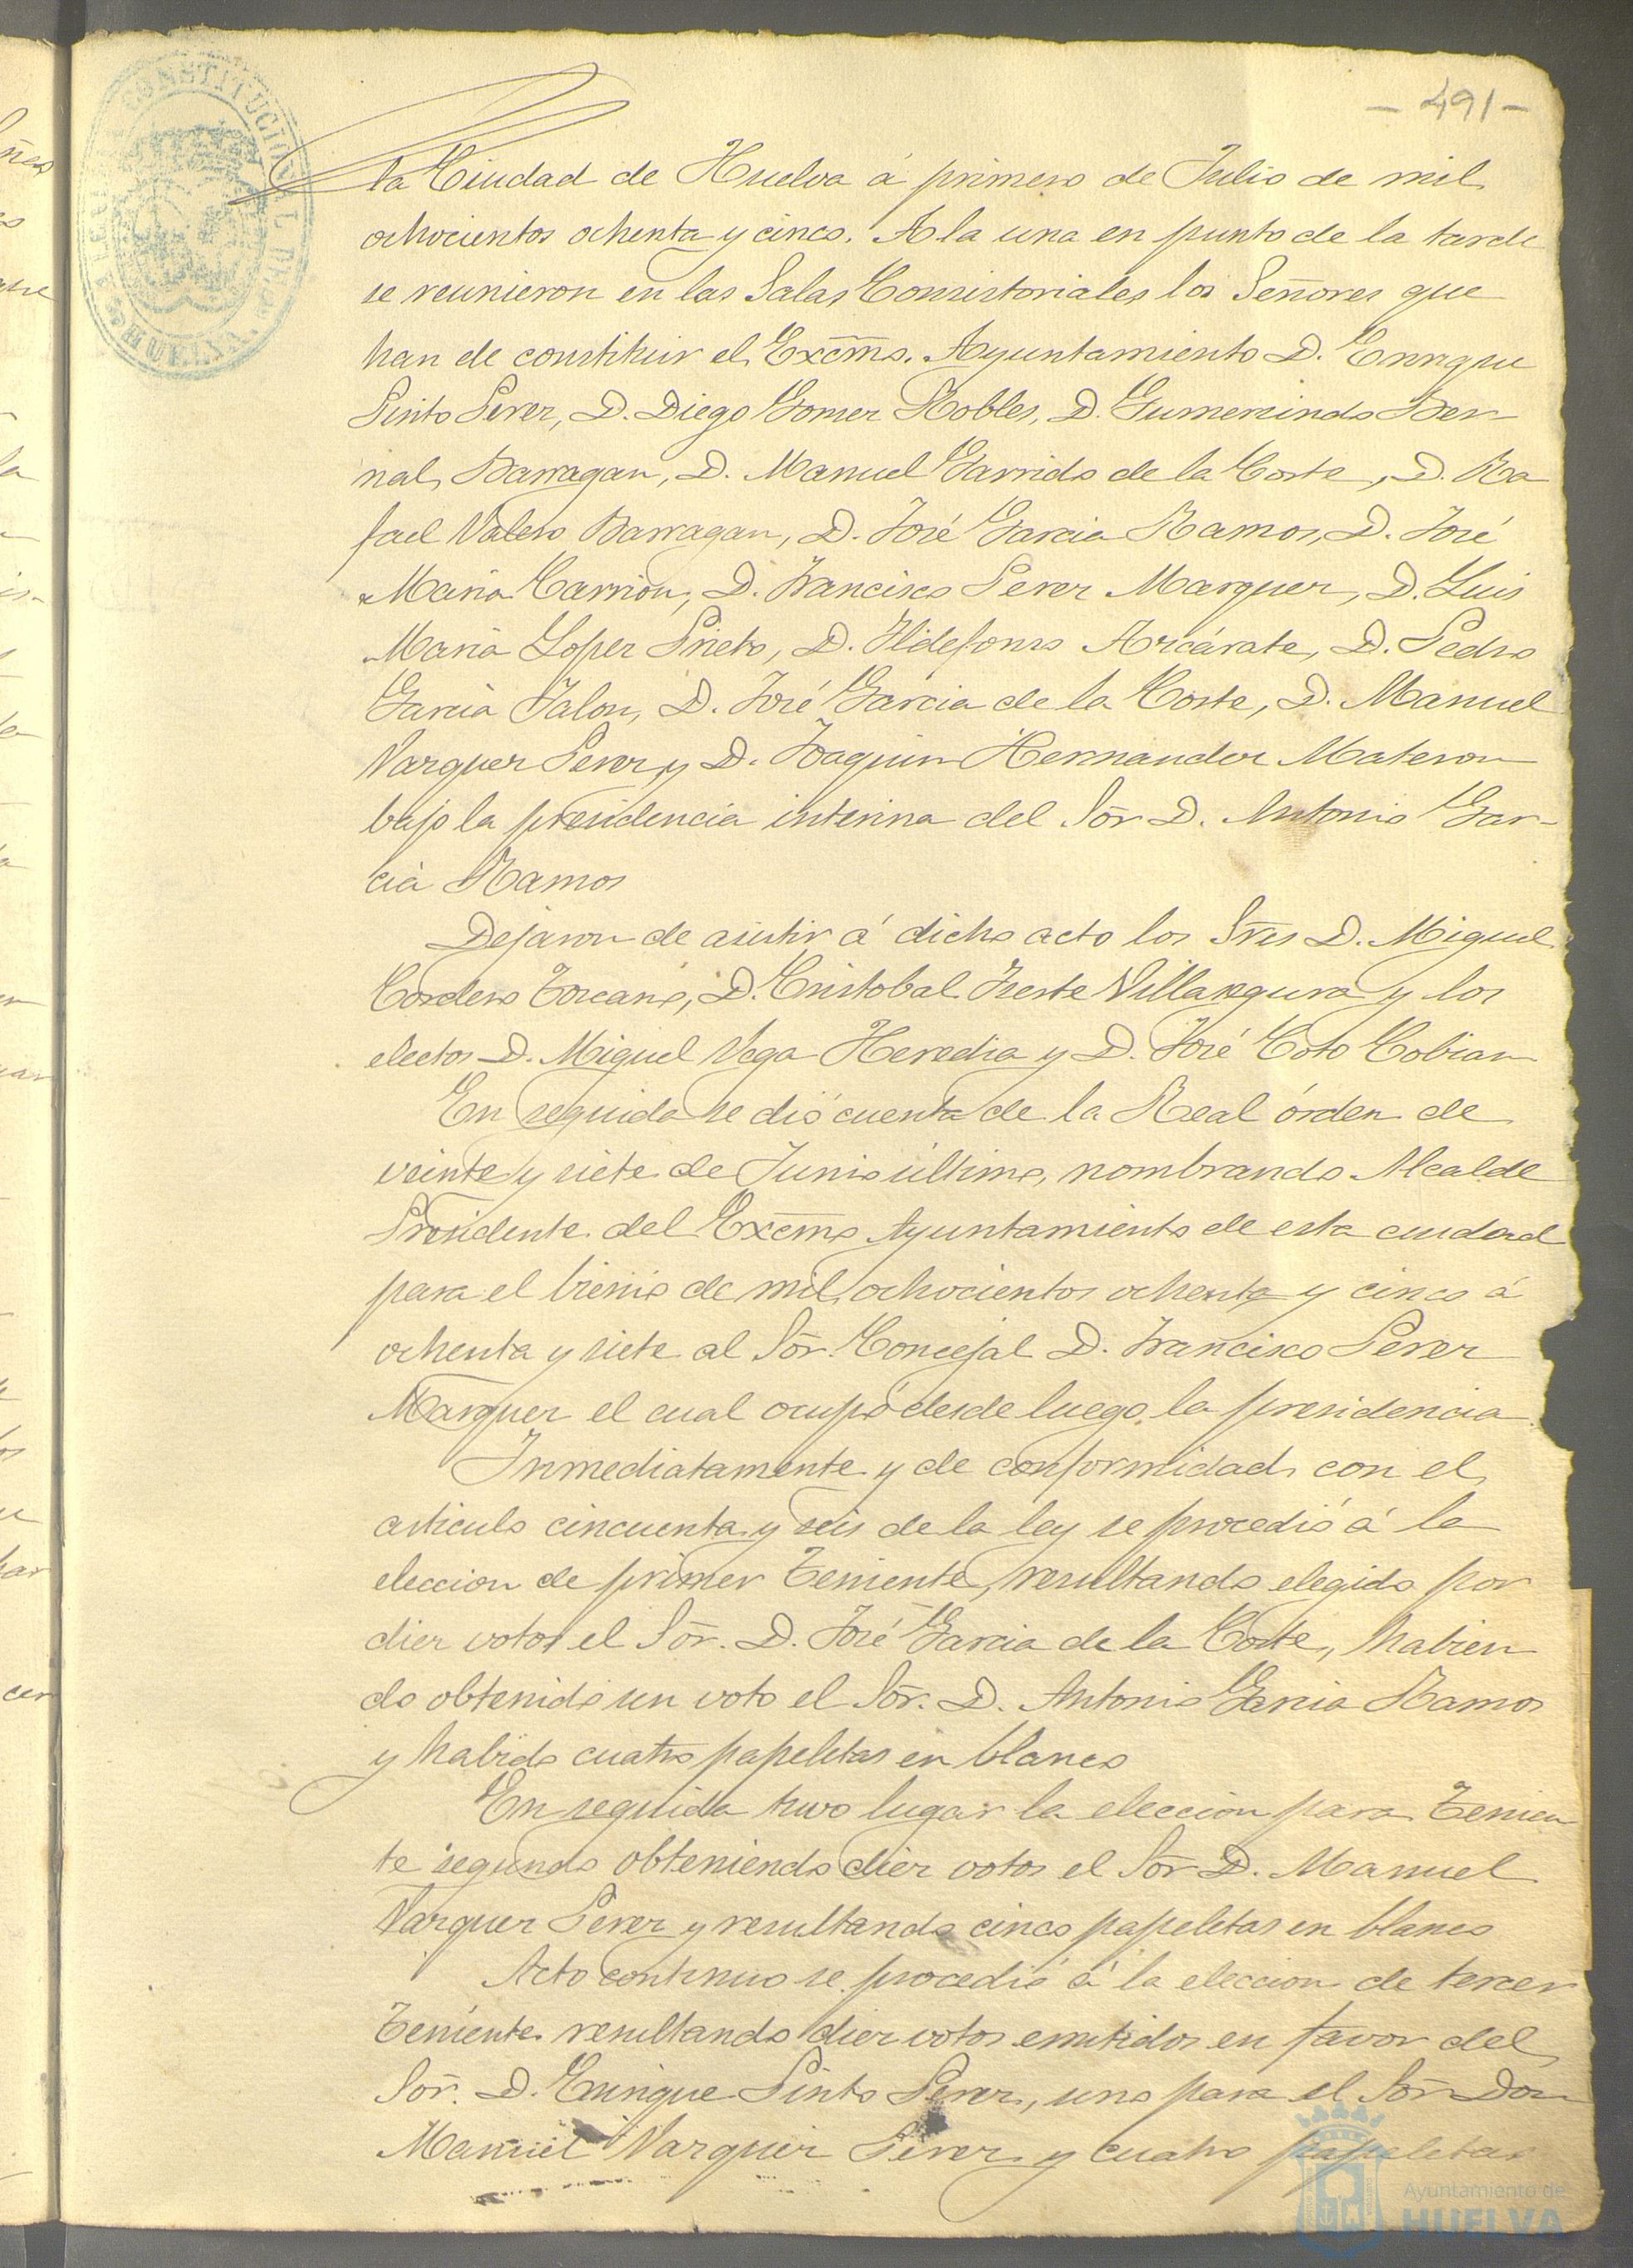 - 491 -
CONSTITUCIONAL DE
HUELVA
la Ciudad de Huelva á primero de Julio de mil
ochocientos ochenta y cinco. A la una en punto de la tarde
se reunieron en las Salas Consistoriales los Señores que
han de constituir el Excmo. Ayuntamiento D. Enrique
Pinto Perez, D. Diego Gomez Robles, D. Gumersindo Ber-
nal Barragan, D. Manuel Garrido de la Corte, D. Ra
fael Valero Barragan, D. José Garcia Ramos, D. José
Maria Carrion, D. Francisco Perez Marquez, D. Luis
Maria Lopez Prieto, D. Ildefonso Azcárate, D. Pedro
Garcia Jalon, D. José Garcia de la Corte, D. Manuel
Vazquez Perez y D. Joaquin Hernandez Materon
bajo la presidencia interina del Sor D. Antonio Gar-
cia Ramos
Dejaron de asistir á dicho acto los Sres D. Miguel
Cordero Toscano, D. Cristobal Villasegura y los
electos D. Miguel Vega Heredia y D. José Coto Cobian
En seguida se dió cuenta de la Real órden de
veinte y siete de Junio último, nombrando Alcalde
Presidente del Excmo Ayuntamiento de esta ciudad
para el bienio de mil ochocientos ochenta y cinco á
ochenta y siete al Sor. Concejal D. Francisco Perez
Marquez el cual ocupó desde luego la presidencia.
Inmediatamente y de conformidad con el
articulo cincuenta y seis de la ley se procedió á la
eleccion de primer Teniente, resultando elegido por
diez votos el Sor. D. José Garcia de la Corte, habien
do obtenido un voto el Sor. D. Antonio Garcia Ramos
y habido cuatro papeletas en blanco
En seguida tuvo lugar la eleccion para Tenien
te segundo obteniendo diez votos el Sor D. Manuel
Vazquez Perez y resultando cinco papeletas en blanco
Acto continuo se procedió á la eleccion de tercer
Teniente resultando diez votos emitidos en favor del
Sor. D. Enrique Pinto Perez, uno para el Sor Don
Manuel Vazquez Perez y cuatro papeletas
Ayuntamiento de
HUELVA